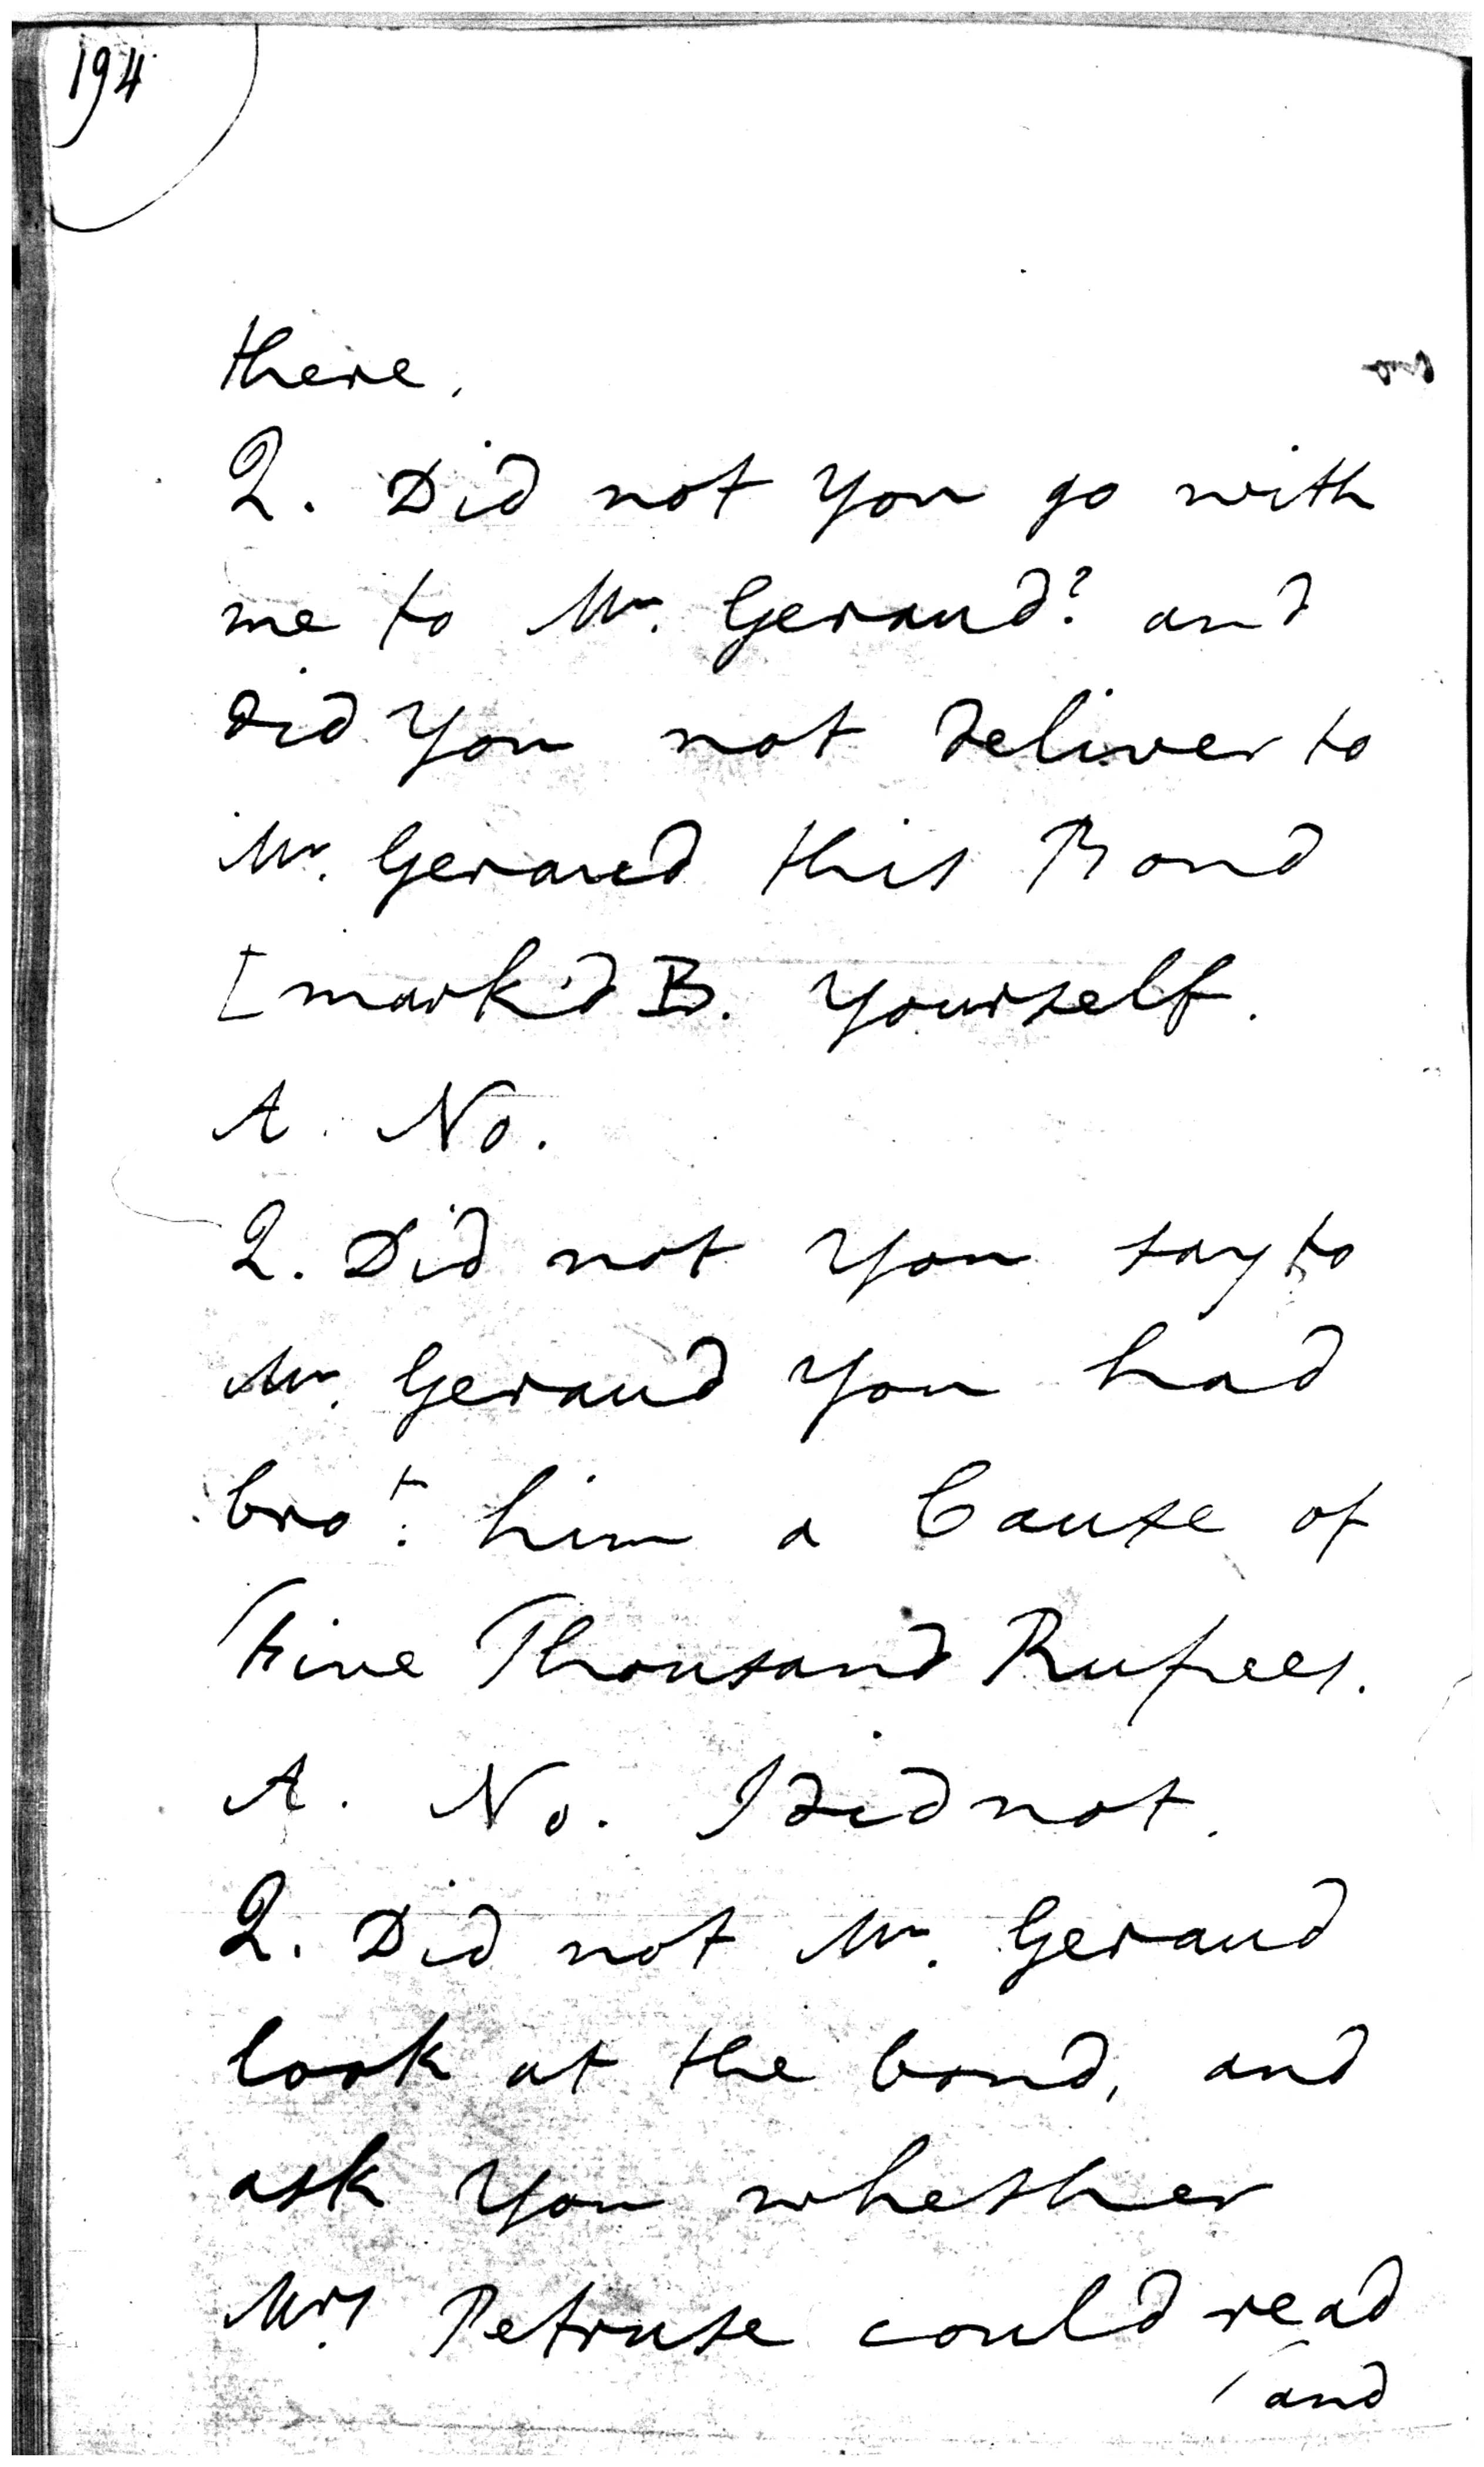 194
there.
Q. Did not you go with
me to Mr. Geraud? and
did you not deliver to
Mr. Geraud this Bond
[mark'd B. yourself.
A. No.
Q. Did not you say to
Mr. Geraud you had
bro.t him a Cause of
Five Thousand Rupees.
A. No. I did not.
Q. Did not Mr. Geraud
look at the bond, and
ask you whether
Mrs. Petruse could read
/and